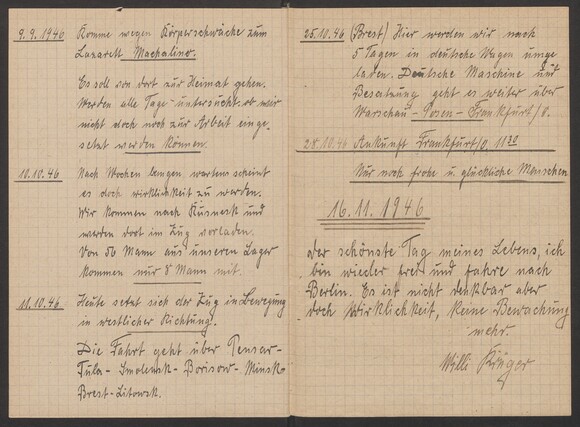 9.9.1946 Komme wegen Körperschwäche zum
Lazarett Machalino.
Es soll von dort zur Heimat gehen.
Werden alle Tage untersucht ob wir
nicht doch noch zur Arbeit einge-
setzt werden können.
10.10.46 Nach Wochen langen wartens scheint
es doch wirklichkeit zu werden.
Wir kommen nach Kusnesk und
werden dort im Zug verladen.
Von 56 Mann aus unseren Lager
kommen nur 8 Mann mit.
11.10.46 Heute setzt sich der Zug in Bewegung
in westlicher Richtung.
Die Fahrt geht über Pensar-
Tula-Smolensk-Borisow-Minsk
Brest-Litowsk.
25.10.46 (Brest) Hier werden wir nach
5 Tagen in deutsche Wagen umge
laden. Deutsche Maschine und
Besatzung geht es weiter über
Warschau-Posen-Frankfurt/O.
28.10.46 Ankunft Frankfurt/O. 11 30
Nur noch frohe u. glückliche Menschen
16.11.1946
Der schönste Tag meines Lebens, ich
bin wieder frei und fahre nach
Berlin. Es ist nicht denkbar aber
doch Wirklichkeit, keine Bewachung
mehr.
Willi Krüger